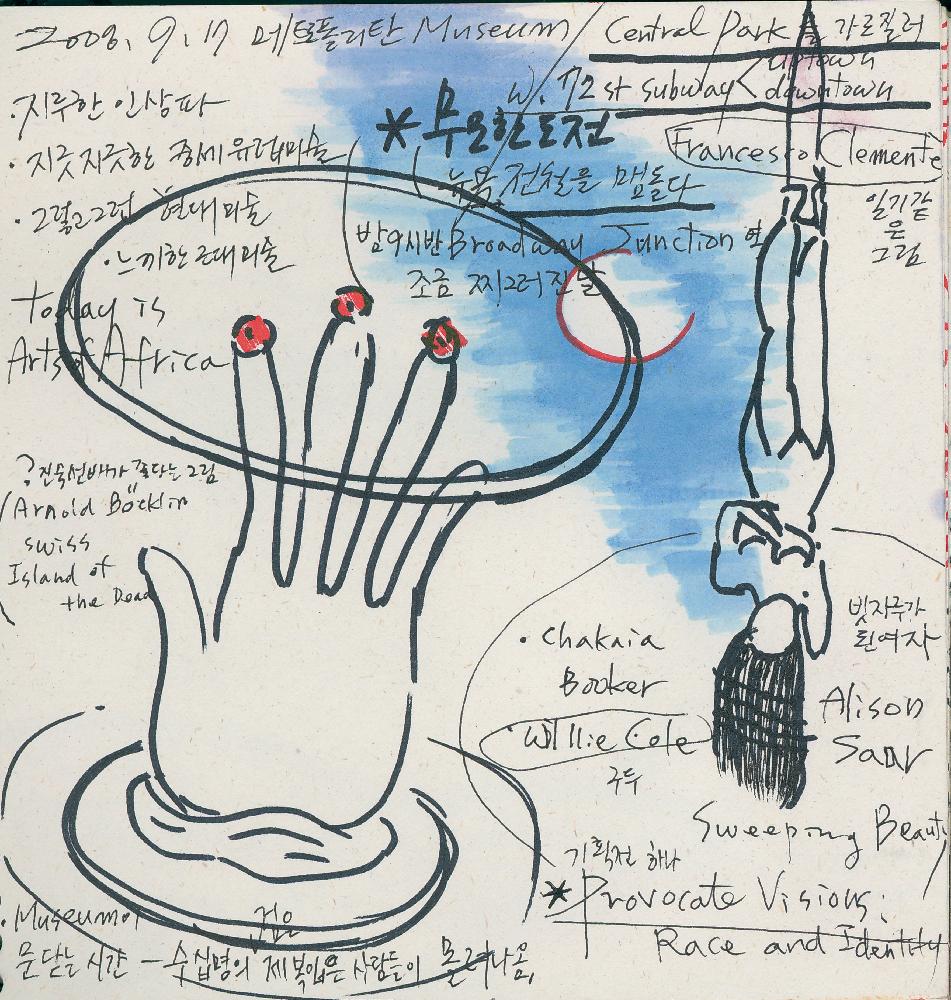 2008. 9. 17 메트로폴리탄 Museum / Central Park를 가로질러
w. 72 st subway < uptown
downtown
Francesco Clemente
일기같
은
그림
· 지루한 인상파
· 지긋지긋한 중세유럽미술
· 그렇고그런 현대미술
· 느끼한 근대미술
* 무모한 도전
뉴욕 전철을 맴돌다
밤 9시반 Broadway Junction 역
조금 찌그러진 날
today is
Arts of Africa
? 진욱선배가 좋다는 그림
Arnold Böcklin
swiss
Island of
the Dead
· Chakaia
Booker
· Willie Cole
구두
빗자루가
된여자
Alison
Saar
Sweeping Beauty
기획전 하나
* Provocate Visions:
Race and Identity
· Museum이
문닫는 시간 — 수십명의 검은 제복입은 사람들이 몰려나옴.